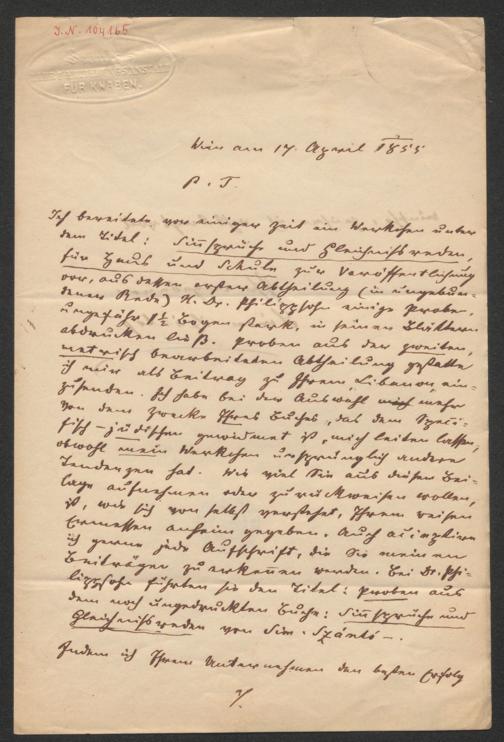 J.N. 104165
FÜR KNABEN.
Wien am 17. April 1855
P. T.
Ich bereitete vor einiger Zeit ein Werkchen unter
dem Titel: Sinnsprüche und Gleichnißreden,
für Haus und Schule zur Veröffentlichung
vor, aus dessen erster Abtheilung (in ungebun-
dener Rede) H. Dr. Philippsohn einige Proben,
ungefähr 1½ Bogen stark, in seinen Blättern
abdrucken ließ. Proben aus der zweiten,
metrisch bearbeiteten Abtheilung gestatte
ich mir als Beitrag zu Ihrem Libanon ein-
zusenden. Ich habe bei der Auswahl mich mehr
von dem Zwecke Ihres Buches, das dem Speci-
fisch-jüdischen gewidmet ist, mich leiten lassen,
obwohl mein Werkchen ursprünglich andere
Tendenzen hat. Wie viel Sie aus dieser Bei-
lage aufnehmen oder zurückweisen wollen,
ist, wie sich von selbst versteht, Ihrem weisen
Ermessen anheim gegeben. Auch acceptire
ich gerne jede Aufschrift, die Sie meinen
Beiträgen zu erkennen werden. Bei Dr. Phi-
lippsohn führten sie den Titel: Proben aus
dem noch ungedruckten Buche: Sinnsprüche und
Gleichnißreden von Sim. Szántó —.
Indem ich Ihrem Unternehmen den besten Erfolg